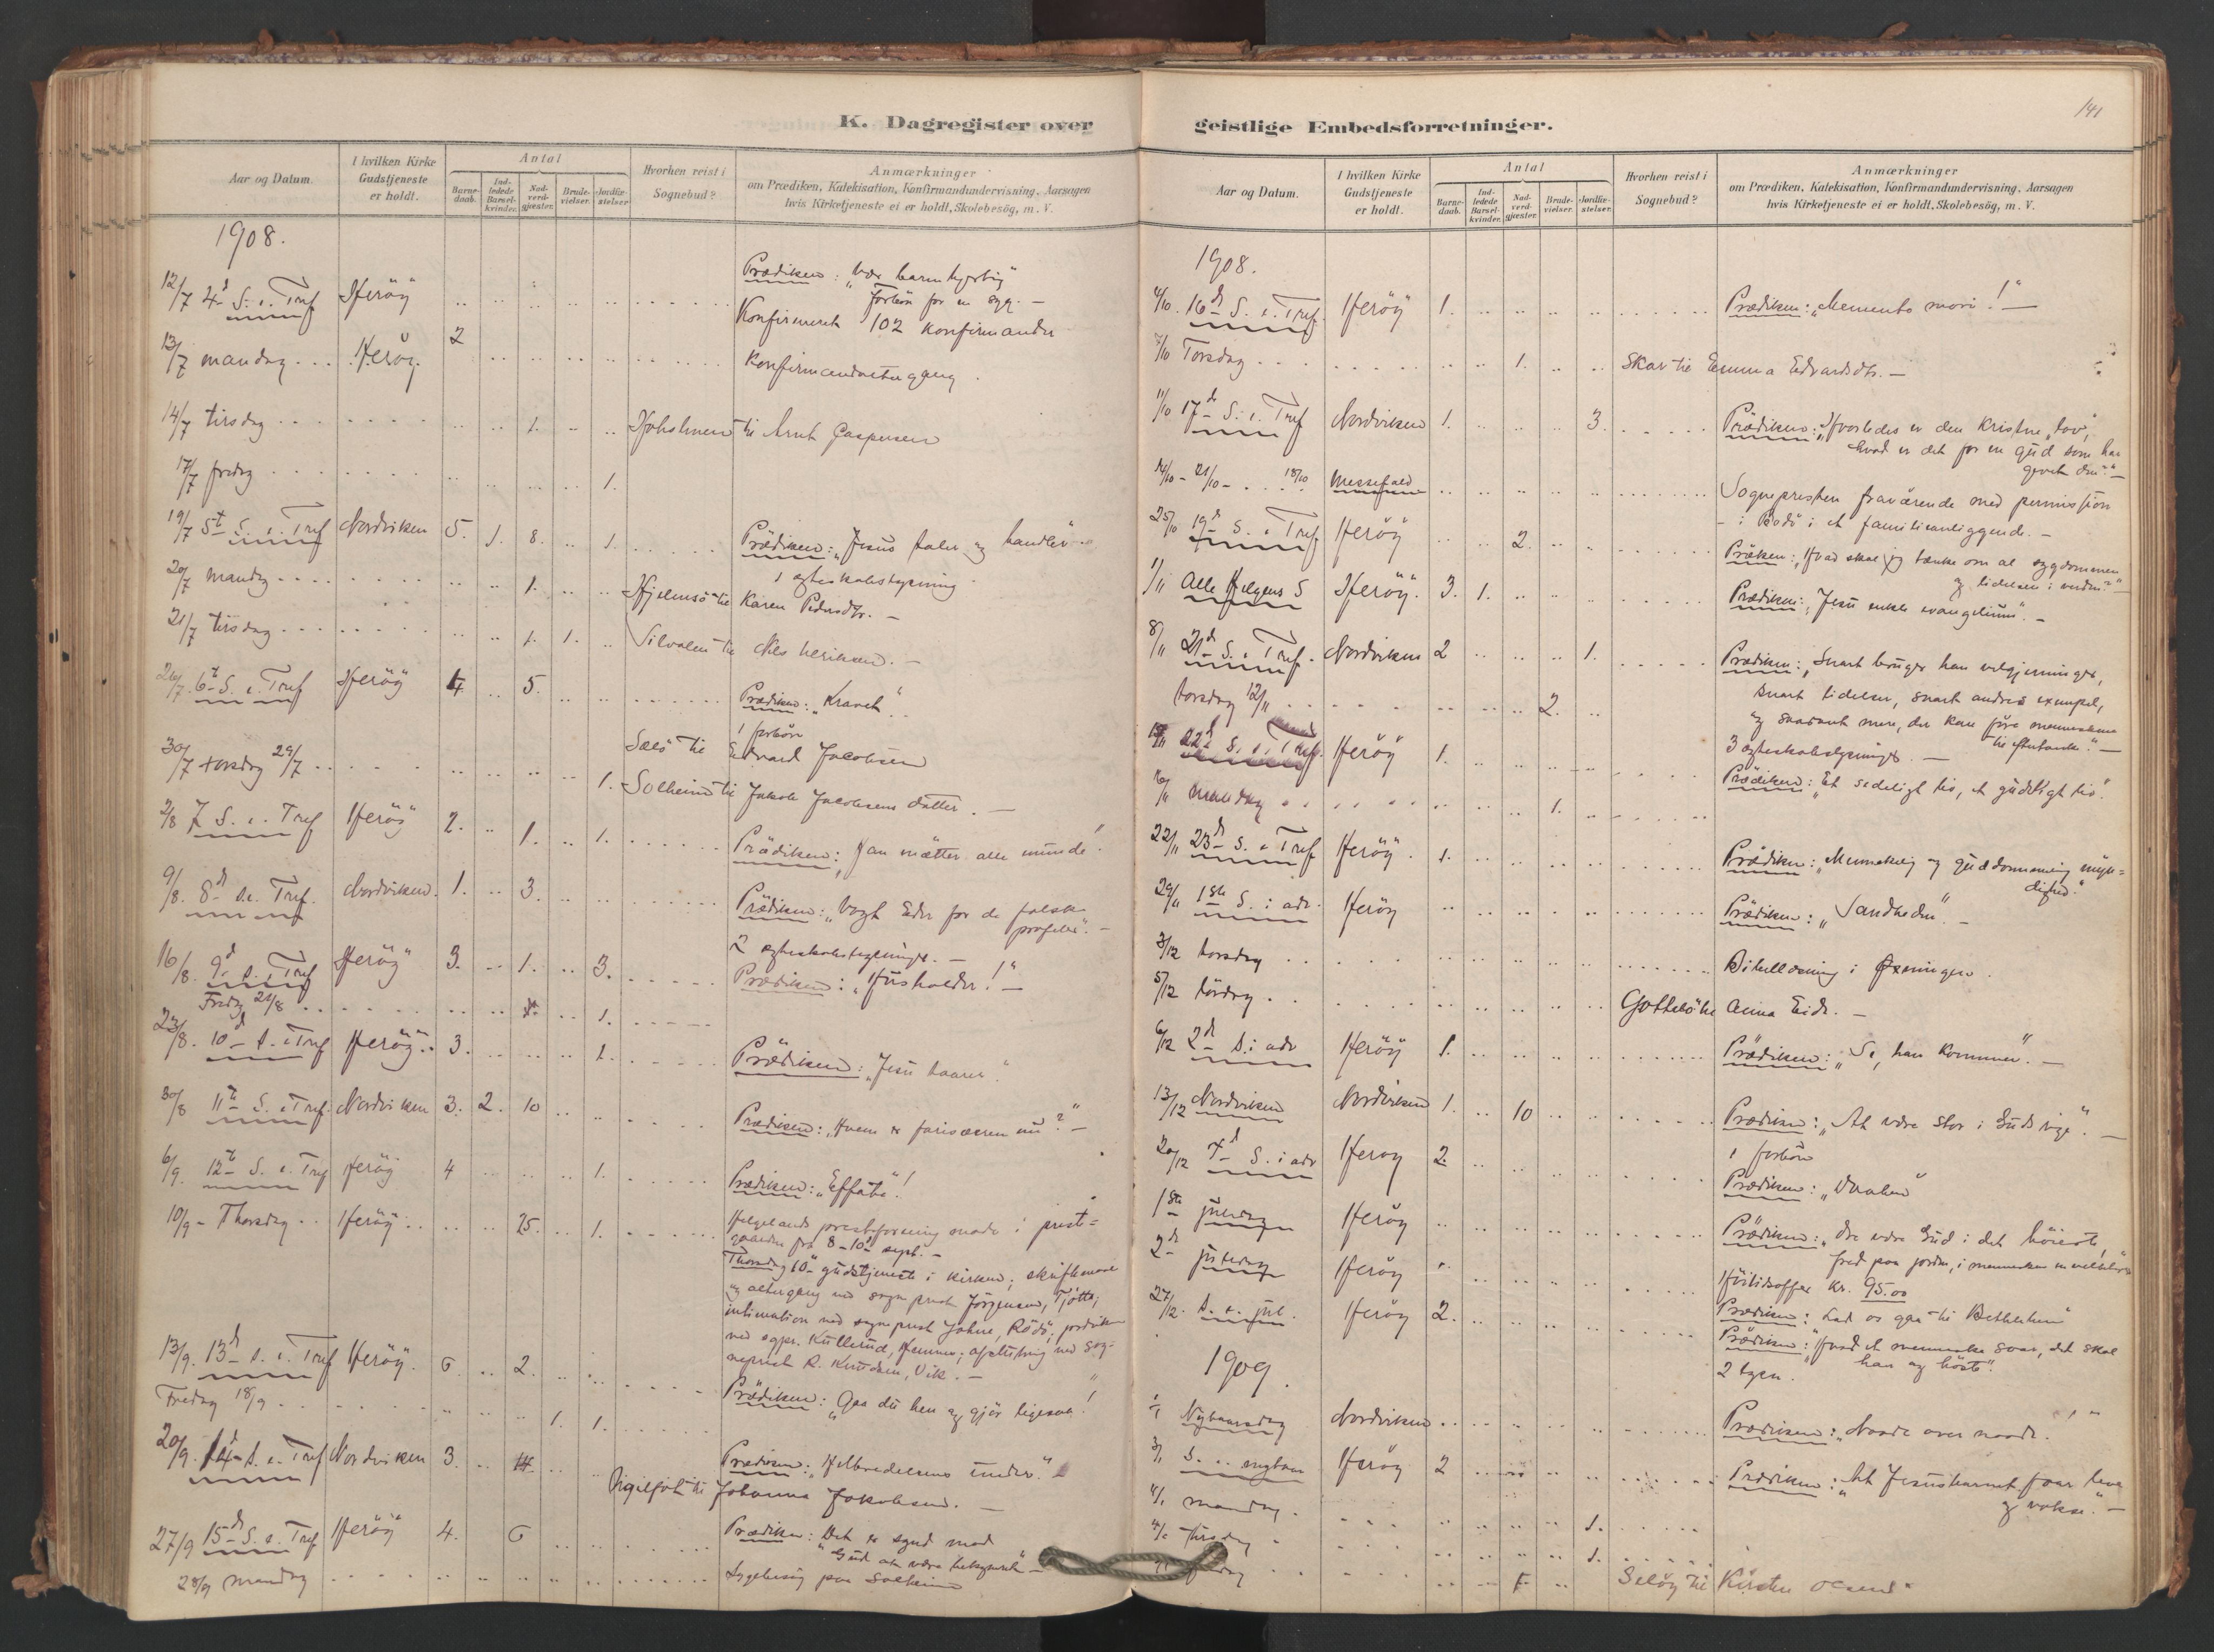 K. Dagregister over
Aar og Datum.
I hvilken Kirke
Gudstjeneste
er holdt.
Antal
Barne-
daab.
Ind-
ledede
Barsel-
kvinder.
Nad-
verd-
gjæster.
Brude-
vielser.
Jordfæ-
stelser
Hvorhen reist i
Sognebud?
Anmærkninger
om Prædiken, Katekisation, Konfirmandundervisning, Aarsagen
hvis Kirketjeneste ei er holdt, Skolebesög, m. V.
1908.
Prædiken: "Vær barmhjertig"
12/7 4d S. e. Tref Herøy
Forbön for en syg. —
Konfirmeret 102 konfirmander
13/7 mandag Herøy. 2
Konfirmandaltergang.
14/7 tirsdag 1. til Arnt Caspersen
17/7 fredag 1.
19/7 5t S. e. Tref Nordviken 5. 1. 8. 1. Prædiken: "Jesus taler og handler"
1 egteskabslysning
20/7 mandag 1. Hjelmsö til Karen Pedersdtr. —
21/7 tirsdag 1. 1. Silvalen til Nils —
26/7 6t S. e. Tref Herøy 4. 5. Prædiken: "Kravet".
1 forbön
30/7 torsdag 29/7 Sæs til Edvard Jacobsen
1. Solheim til Jakob Jacobsens datter. —
2/8 7 S. e. Tref Herøy 2. 1. 1. Prädiken: "Han mætter alle munde".
9/8. 8d S. e. Tref. Nordviken. 1. 3. Prädiken: "Vogt Eder for de falske
profeter". —
2 egteskabslysninger. —
16/8. 9d S. e. Tref Herøy 3. 1. 3. Prædiken: "Husholder!" —
Fredag 21/8 1.
23/8. 10d S. e. Tref Herøy 3. 1. Prädiken: "Jesu taarer".
30/8 11te S. e. Tref. Nordviken 3. 2. 10 Prædiken: "Hvem er farisæeren nu?" —
6/9. 12te S. e. Tref Herøy 4 1. Prædiken: "Effata"!
10/9 - Thorsdag Herøy 25. 1. Helgelands presteforening möde i prest=
gaarden fra 8-10d sept. —
Thorsdag 10d gudstjeneste i kirken; skriftemaal
og altergang ved sogneprest Jörgensen, Tjötta;
intimation ved sogneprest Rödö; prediken
ved sgpr. Kullerud, Hemnes; afslutning ved sog-
neprest R. Knudsen, Vik. —
13/9. 13d S. e. Tref Herøy. 6 2. Prædiken: "Gaa du hen og gjör ligesaa!"
Fredag 18/9 1. 1.
20/9. 14d S. e. Tref Nordviken 3. Prædiken: "Helbredelsens under."
til Johanna Jakobsen. —
27/9 15d S. e. Tref Herøy 4. 6 Prædiken: Det er synd mod
"Gud at være bekymret" —
28/9 mandag Sygebesög paa Solheim
141
geistlige Embedsforretninger.
Aar og Datum.
I hvilken Kirke
Gudstjeneste
er holdt.
Antal
Barne-
daab.
Ind-
ledede
Barsel-
kvinder.
Nad-
verd-
gjæster.
Brude-
vielser.
Jordfæ-
stelser.
Hvorhen reist i
Sognebud?
Anmærkninger
om Prædiken, Katekisation, Konfirmandundervisning, Aarsagen
hvis Kirketjeneste ei er holdt, Skolebesög, m. V.
1908.
4/10. 16d S. e. Tref. Herøy 1. Prædiken: "Memento mori!" —
Torsdag 1. Skar til Emma Edvardsdtr. —
11/10 17d S. e. Tref Nordviken 1. 3. Prädiken: "Hvorledes er den kristne "lov",
hvad er det for en gud som har
givet den?" —
14/10 - 21/10 - 18/10 Messefald Sognepresten fraværende med permission
- i Bodö i et familieanliggende. —
25/10 19d S. e. Tref Herøy 2. Präken: "Hvad skal jeg tænke om al sygdommen
og lidelsen i verden?" —
1/11 Alle Helgens S Herøy. 3. 1. Prædiken: "Jesu enkle evangelium". —
8/11 21d S. e. Tref. Nordviken 2 1. Prædiken: "Snart bruger han velgjerninger,
snart lidelser, snart andres exempel,
og saadant mere, der kan före mennesken
til eftertanke." —
torsdag 12/11 2.
3 egteskabslysninger. —
15/11 22d S. e. Tref. Herøy 1. Prædiken: "Et sedeligt liv, et gudeligt liv".
16/11 mandag 1.
22/11 23d S. e. Tref Herøy. 1. Prædiken: "Menneskelig og guddommelig myn=
dighed."
29/11 1ste S. i adv. Herøy Prädiken: "Sandheden". —
3/12 torsdag Bibellæsning i Øksningen.
5/12 lördag til Anna Eide. —
6/12 2d S. i adv Herøy 1. Prädiken: "Se, han kommer". —
13/12 Nordviken Nordviken 1. 10 Prædiken: "At være stor i Guds rige". —
1 forbön
20/12 4d S. i adv Herøy 2. Prædiken: "Daaben"
1ste juledag Herøy Prädiken: "Ære være Gud i det höieste,
fred paa jorden, i mennesken en velbehag"
2d juledag Herøy Höitidsoffer kr. 95.00
Prædiken: Lad os gaa til Bethlehem"
27/12. S. e. jul. Herøy 2. Prädiken: "Hvad et menneske saar, det skal
han og höste".
2 lysn.
1909.
1/1 Nytaarsdag Nordviken Prædiken: "Naade over naade!"
3/1 S. e. nytaar Herøy 2 Prædiken: "At Jesusbarnet faar leve
og vokse." —
4/1 mandag. 1.
Tirsdag 1.
Seløy til Kirsten Olsen